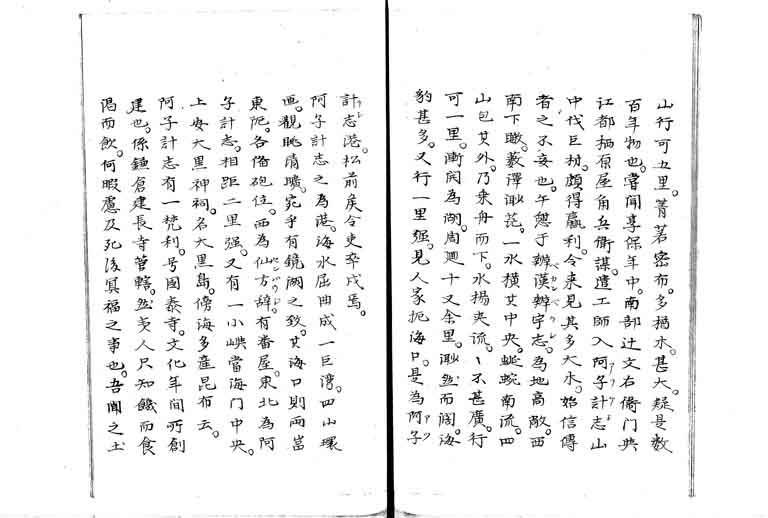 山行可五里。菁茗密布。多楊木。甚大。疑是数
百年物也。嘗聞享保年中。南部辻文右衛門与
江都栖原屋角兵衛謀。遣工師入阿子計志山
中伐巨材。頗得贏利。今来見其多大木。始信傳
者之不妄也。午憩于辨漢辨宇志。為地高敞。西
南下瞰。薮澤渺茫。一水横其中央。蜿蜒南流。四
山包其外。乃乗舟而下。水揚夾流。〻不甚廣。行
可一里。漸闊為湖。周廻十又余里。渺然而闊。海
豹甚多。又行一里強。見人家扼海口。是為阿子
計志港。松前矦令吏卒戍焉。
阿子計志之為港。海水屈曲成一巨湾。四山環
匝。観眺清曠。宛乎有鏡湖之致。其海口則両岩
東阨。各備砲位。西為仙方辞。有番屋。東北為阿
子計志。相距二里强。又有一小嶼當海門中央。
上安大黒神祠。名大黒島。傍海多産昆布云。
阿子計志有一梵刹。号國泰寺。文化年間所創
建也。係鎌倉建長寺管轄。然夷人只知饑而食
渇而飲。何暇慮及死後冥福之事也。吾聞之土